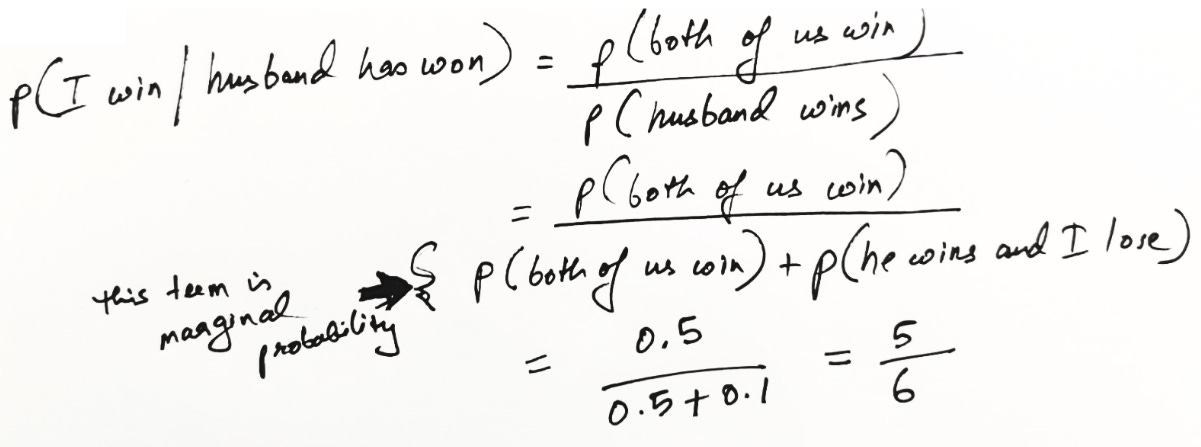 p(I win / husband has won) = p(both of us win)
p(husband wins)
= p(both of us win)
p(both of us win) + p(he wins and I lose)
this term is
marginal
probability
= 0.5 = 5
0.5 + 0.1 6